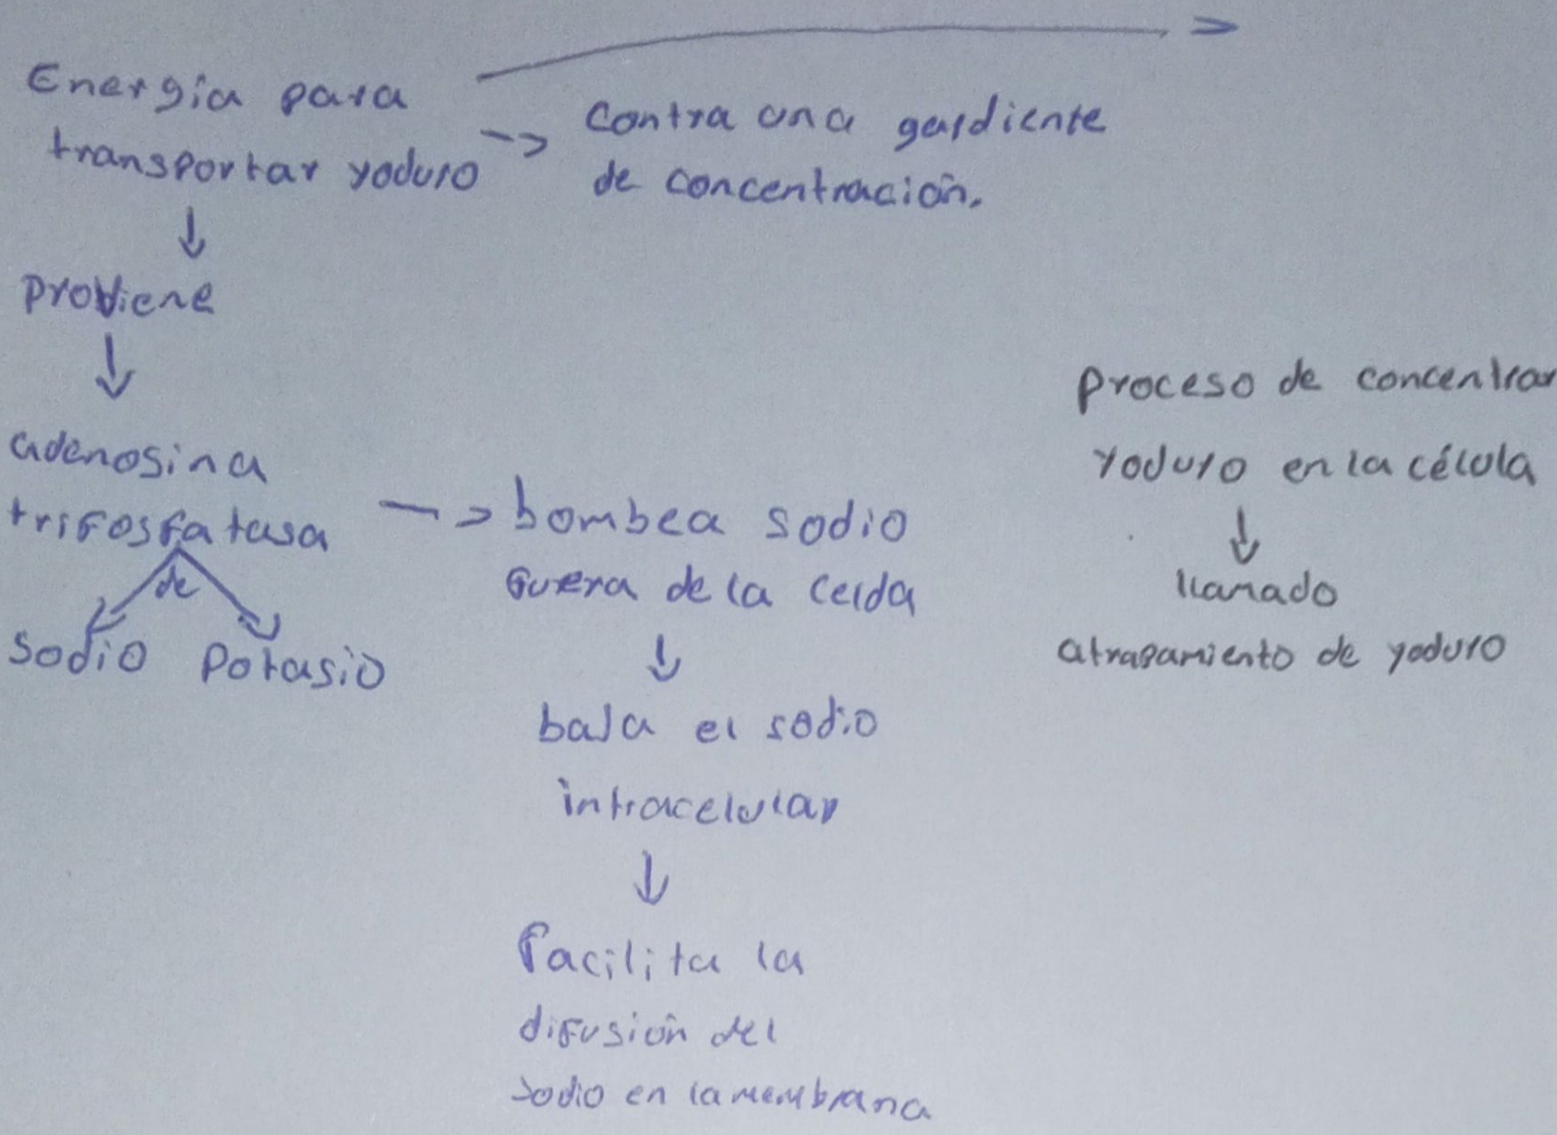 Energía para
transportar yoduro
->
contra una gardiente
de concentración.
proviene
adenosina
trifosfatasa
de
sodio potasio
-> bombea sodio
fuera de la celda
baja el sodio
intracelular
facilita la
difusión del
sodio en la membrana
proceso de concentrar
yoduro en la célula
llamado
atrapamiento de yoduro